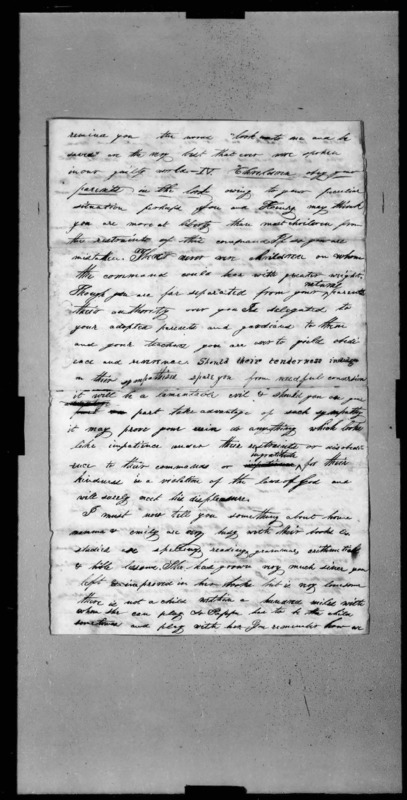 remind you the words "look unto me and be
saved" are the very best that ever were spoken
in our guilty world—IV. Children obey your
parents in the Lord owing to your peculiar
situation perhaps you and Henry may think
you are more at liberty than most children from
the restraints of this command If so you are
mistaken. There never were children on whom
the command could bear with greater weight.
Though you are far separated from your natural parents
their authority over you is delegated to
your adopted parents and guardians to them
and your teachers you are ever to yield obedi
ence and reverence. Should their tenderness
in their sympathies spare you from needful correction
it will be a lamentable evil & should you on your
part take advantage of such sympathy
it may prove your ruin as anything which looks
like impatience under their restraints or disobedi
ence to their commands or ingratitude for their
kindness is a violation of the law of God and
will surely meet his displeasure.
I must now tell you something about home
mamma & Emily are very busy with their books &c
studies are spelling, reading, grammar,
& bible lessons. She has grown very much since you
left & improved in her books but is very lonesome
there is not a child within a hundred miles with
whom she can play & Pappa has to be the child
sometimes and play with her You remember how we